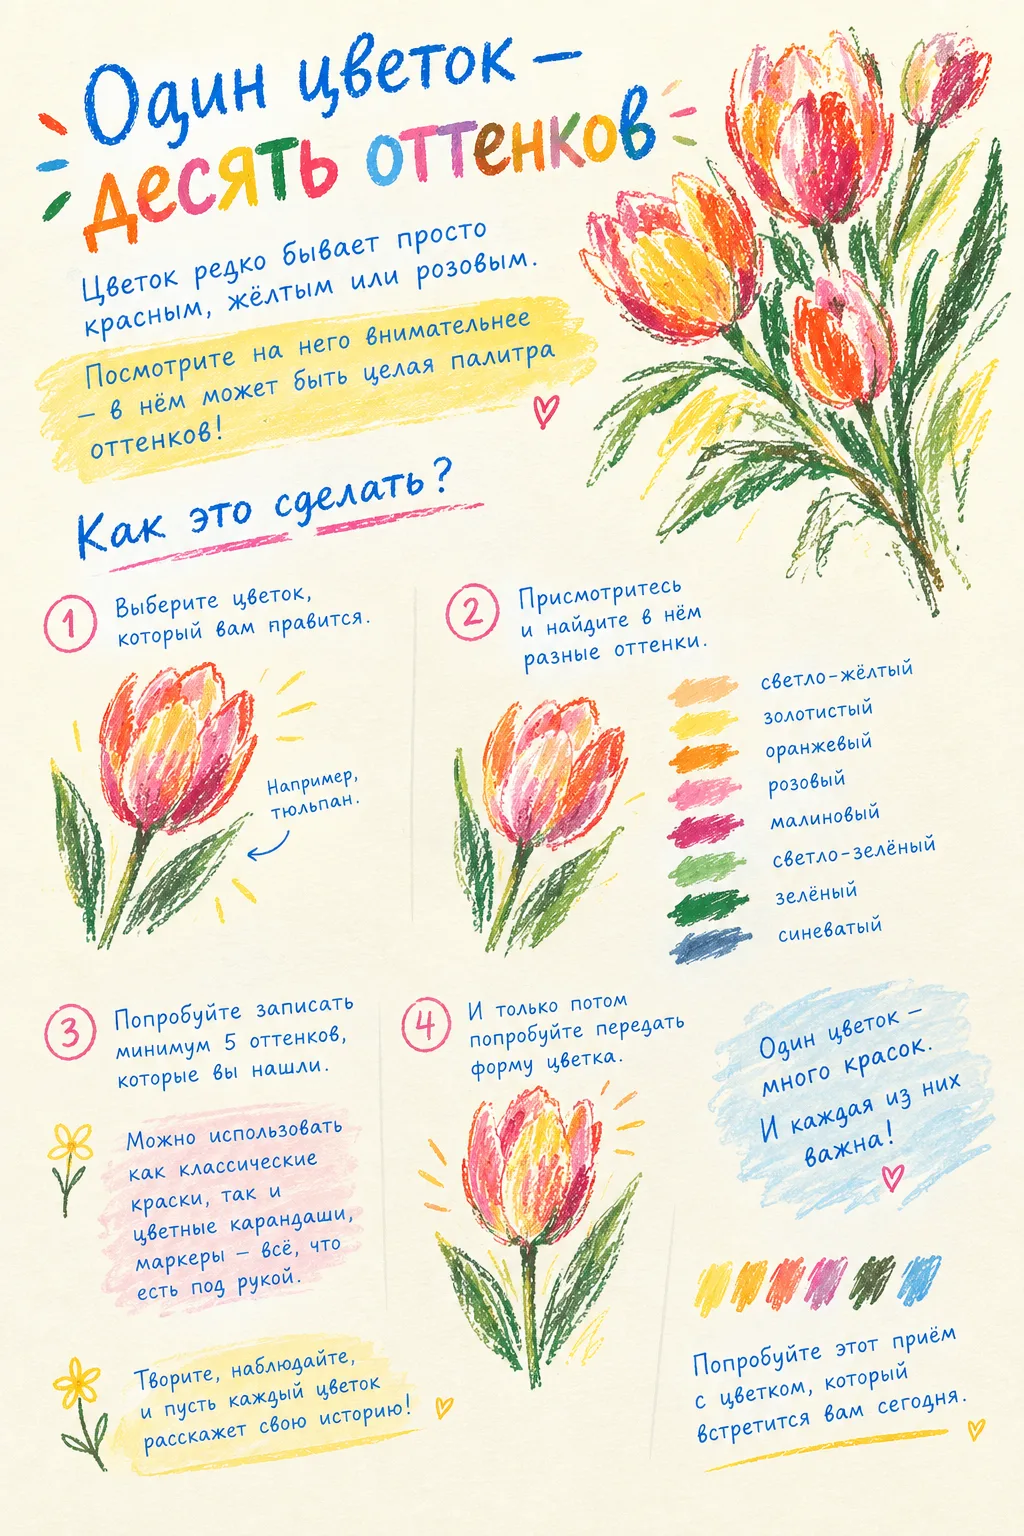 Один цветок –
десять оттенков
Цветок редко бывает просто
красным, жёлтым или розовым.
Посмотрите на него внимательнее
– в нём может быть целая палитра
оттенков!
Как это сделать?
1
Выберите цветок,
который вам правится.
Например,
тюльпан.
2
Присмотритесь
и найдите в нём
разные оттенки.
светло-жёлтый
золотистый
оранжевый
розовый
малиновый
светло-зелёный
зелёный
синеватый
3
Попробуйте записать
минимум 5 оттенков,
которые вы нашли.
Можно использовать
как классические
краски, так и
цветные карандаши,
маркеры – всё, что
есть под рукой.
Творите, наблюдайте,
и пусть каждый цветок
расскажет свою историю!
4
И только потом
попробуйте передать
форму цветка.
Один цветок –
много красок.
И каждая из них
важна!
Попробуйте этот приём
с цветком, который
встретится вам сегодня.